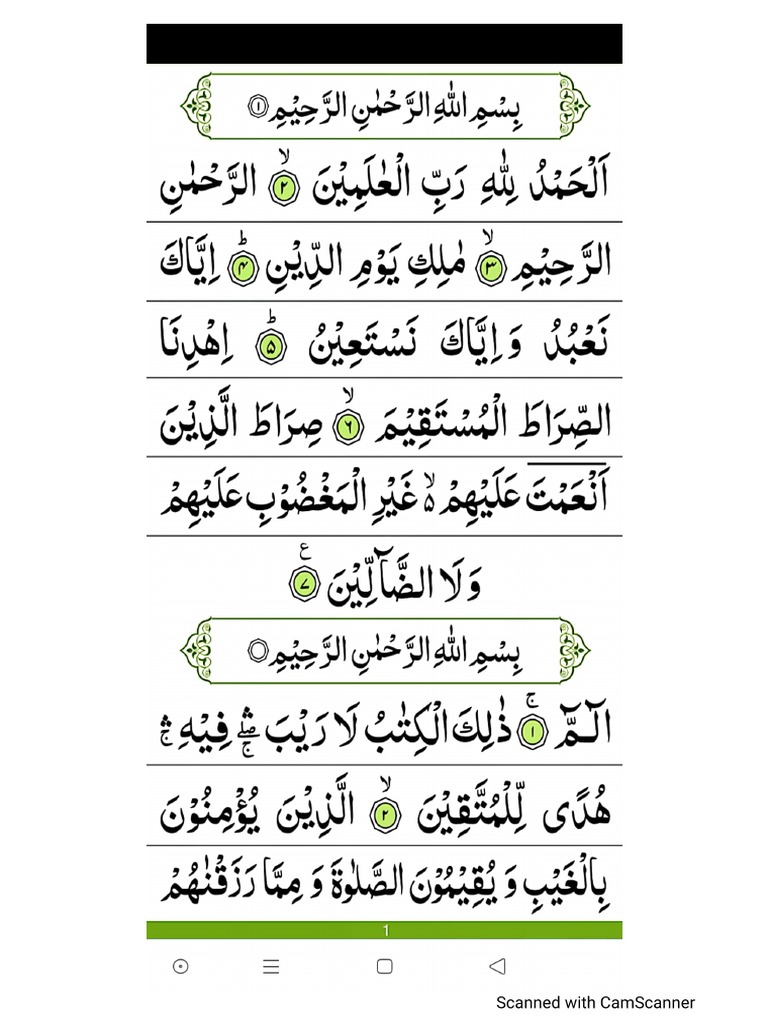 بِسْمِ اللهِ الرَّحْمٰنِ الرَّحِيْمِ ۝۱
اَلْحَمْدُ لِلّٰهِ رَبِّ الْعٰلَمِيْنَ ۙ۝۲ الرَّحْمٰنِ
الرَّحِيْمِ ۙ۝۳ مٰلِكِ يَوْمِ الدِّيْنِ ؕ۝۴ اِيَّاكَ
نَعْبُدُ وَ اِيَّاكَ نَسْتَعِيْنُ ؕ۝۵ اِهْدِنَا
الصِّرَاطَ الْمُسْتَقِيْمَ ۙ۝۶ صِرَاطَ الَّذِيْنَ
اَنْعَمْتَ عَلَيْهِمْ ۙ۵ غَيْرِ الْمَغْضُوْبِ عَلَيْهِمْ
وَ لَا الضَّآلِّيْنَ ۝۷ ع
بِسْمِ اللهِ الرَّحْمٰنِ الرَّحِيْمِ ۝
الٓـمّٓ ۚ۝۱ ذٰلِكَ الْكِتٰبُ لَا رَيْبَ ۛۖۚ فِيْهِ ۛۚ
هُدًى لِّلْمُتَّقِيْنَ ۙ۝۲ الَّذِيْنَ يُؤْمِنُوْنَ
بِالْغَيْبِ وَ يُقِيْمُوْنَ الصَّلٰوةَ وَ مِمَّا رَزَقْنٰهُمْ
1
Scanned with CamScanner